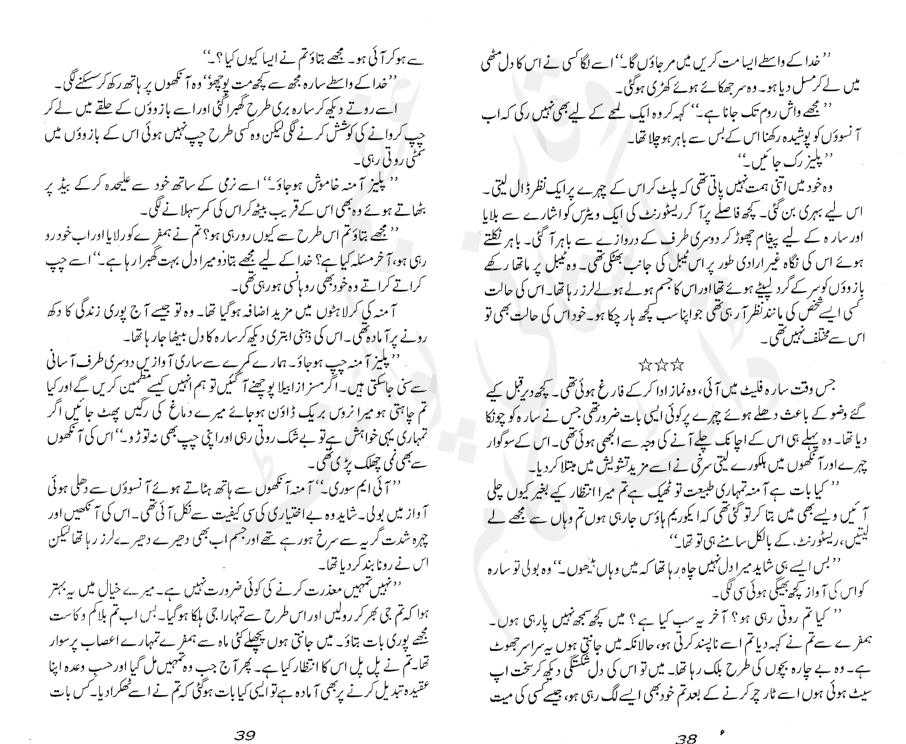 ’’خدا کے واسطے ایسا مت کریں میں مر جاؤں گا۔‘‘ اسے لگا کسی نے اس کا دل مٹھی
میں لے کر مسل دیا ہو۔ وہ سر جھکائے ہوئے کھڑی ہو گئی۔
’’مجھے واش روم تک جانا ہے۔‘‘ کہہ کر وہ ایک لمحے کے لیے بھی نہیں رکی کہ اب
آنسوؤں کو پوشیدہ رکھنا اس کے بس سے باہر ہو چلا تھا۔
’’پلیز رک جائیں۔‘‘
وہ خود میں اتنی ہمت نہیں پاتی تھی کہ پلٹ کر اس کے چہرے پر ایک نظر ڈال لیتی۔
اس لیے بہری بن گئی۔ کچھ فاصلے پر آ کر ریسٹورنٹ کی ایک ویٹرس کو اشارے سے بلایا
اور سارہ کے لیے پیغام چھوڑ کر دوسری طرف کے دروازے سے باہر آ گئی۔ باہر نکلتے
ہوئے اس کی نگاہ غیر ارادی طور پر اس ٹیبل کی جانب بھٹکی تھی۔ وہ ٹیبل پر ماتھا رکھے
بازوؤں کو سر کے گرد لپیٹے ہوئے تھا اور اس کا جسم ہولے ہولے لرز رہا تھا۔ اس کی حالت
کسی ایسے شخص کی مانند نظر آ رہی تھی جو اپنا سب کچھ ہار چکا ہو۔ خود اس کی حالت بھی تو
اس سے مختلف نہیں تھی۔
☆☆☆
جس وقت سارہ فلیٹ میں آئی، وہ نماز ادا کر کے فارغ ہوئی تھی۔ کچھ دیر قبل کیے
گئے وضو کے باعث دھلے ہوئے چہرے پر کوئی ایسی بات ضرور تھی جس نے سارہ کو چونکا
دیا تھا۔ وہ پہلے ہی اس کے اچانک چلے آنے کی وجہ سے الجھی ہوئی تھی۔ اس کے سوگوار
چہرے اور آنکھوں میں ہلکورے لیتی سرخی نے اسے مزید تشویش میں مبتلا کر دیا۔
’’کیا بات ہے آمنہ تمہاری طبیعت تو ٹھیک ہے تم میرا انتظار کیے بغیر کیوں چلی
آئیں ویسے بھی میں بتا کر تو گئی تھی کہ ایکوریم ہاؤس جا رہی ہوں تم وہاں سے مجھے لے
لیتیں، ریسٹورنٹ کے بالکل سامنے ہی تو تھا۔‘‘
’’بس ایسے ہی شاید میرا دل نہیں چاہ رہا تھا کہ میں وہاں بیٹھوں۔‘‘ وہ بولی تو سارہ
کو اس کی آواز کچھ بھیگی ہوئی سی لگی۔
’’کیا تم روتی رہی ہو؟ آخر یہ سب کیا ہے؟ میں کچھ سمجھ نہیں پا رہی ہوں۔
ہمفرے سے تم نے کہہ دیا تم اسے ناپسند کرتی ہو، حالانکہ میں جانتی ہوں یہ سراسر جھوٹ
ہے۔ وہ بے چارہ بچوں کی طرح بلک رہا تھا۔ میں تو اس کی دل شکستگی دیکھ کر سخت اپ
سیٹ ہوئی ہوں اسے ٹارچر کرنے کے بعد تم خود بھی ایسے لگ رہی ہو، جیسے کسی کی میت
38
سے ہو کر آئی ہو۔ مجھے بتاؤ تم نے ایسا کیوں کیا؟۔‘‘
’’خدا کے واسطے سارہ مجھ سے کچھ مت پوچھو‘‘ وہ آنکھوں پر ہاتھ رکھ کر سسکنے لگی۔
اسے روتے دیکھ کر سارہ بری طرح گھبرا گئی اور اسے بازوؤں کے حلقے میں لے کر
چپ کروانے کی کوشش کرنے لگی لیکن وہ کسی طرح چپ نہیں ہوئی اس کے بازوؤں میں
سمٹی روتی رہی۔
’’پلیز آمنہ خاموش ہو جاؤ۔‘‘ اسے نرمی کے ساتھ خود سے علیحدہ کر کے بیڈ پر
بٹھاتے ہوئے وہ بھی اس کے قریب بیٹھ کر اس کی کمر سہلانے لگی۔
’’مجھے بتاؤ تم اس طرح سے کیوں رو رہی ہو؟ تم نے ہمفرے کو رلایا اور اب خود رد
رہی ہو، آخر مسئلہ کیا ہے؟ خدا کے لیے مجھے بتادو میرا دل بہت گھبرا رہا ہے۔‘‘ اسے چپ
کراتے کراتے وہ خود بھی روہانسی ہو رہی تھی۔
آمنہ کی کرلاہٹوں میں مزید اضافہ ہو گیا تھا۔ وہ تو جیسے آج پوری زندگی کا دکھ
رونے پر آمادہ تھی۔ اس کی ذہنی ابتری دیکھ کر سارہ کا دل بیٹھا جا رہا تھا۔
’’پلیز آمنہ چپ ہو جاؤ۔ ہمارے کمرے سے ساری آوازیں دوسری طرف آسانی
سے سنی جا سکتی ہیں۔ اگر مسز ازابیلا پوچھنے آ گئیں تو ہم انہیں کیسے مطمئن کریں گے اور کیا
تم چاہتی ہو میرا نروس بریک ڈاؤن ہو جائے میرے دماغ کی رگیں پھٹ جائیں اگر
تمہاری یہی خواہش ہے تو بے شک روتی رہی اور اپنی چپ بھی نہ توڑو۔‘‘ اس کی آنکھوں
سے بھی نمی چھلک پڑی تھی۔
’’آئی ایم سوری۔‘‘ آمنہ آنکھوں سے ہاتھ ہٹاتے ہوئے آنسوؤں سے دھلی ہوئی
آواز میں بولی۔ شاید وہ بے اختیاری کی سی کیفیت سے نکل آئی تھی۔ اس کی آنکھیں اور
چہرہ شدت گریہ سے سرخ ہو رہے تھے اور جسم اب بھی دھیرے دھیرے لرز رہا تھا لیکن
اس نے رونا بند کر دیا تھا۔
’’نہیں تمہیں معذرت کرنے کی کوئی ضرورت نہیں ہے۔ میرے خیال میں یہ بہتر
ہوا کہ تم جی بھر کر رو لیں اور اس طرح سے تمہارا جی ہلکا ہو گیا۔ بس اب تم بلا کم و کاست
مجھے پوری بات بتاؤ۔ میں جانتی ہوں پچھلے کئی ماہ سے ہمفرے تمہارے اعصاب پر سوار
تھا۔ تم نے پل پل اس کا انتظار کیا ہے۔ پھر آج جب وہ تمہیں مل گیا اور حسب وعدہ اپنا
عقیدہ تبدیل کرنے پر بھی آمادہ ہے تو ایسی کیا بات ہو گئی کہ تم نے اسے ٹھکرا دیا۔ کس بات
39